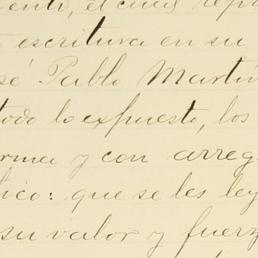 ento, el cual rep
escritura en su
sé Pablo Martín
todo lo expuesto, los
orma y con arreg
lico: que se les ley
su valor y fuerz